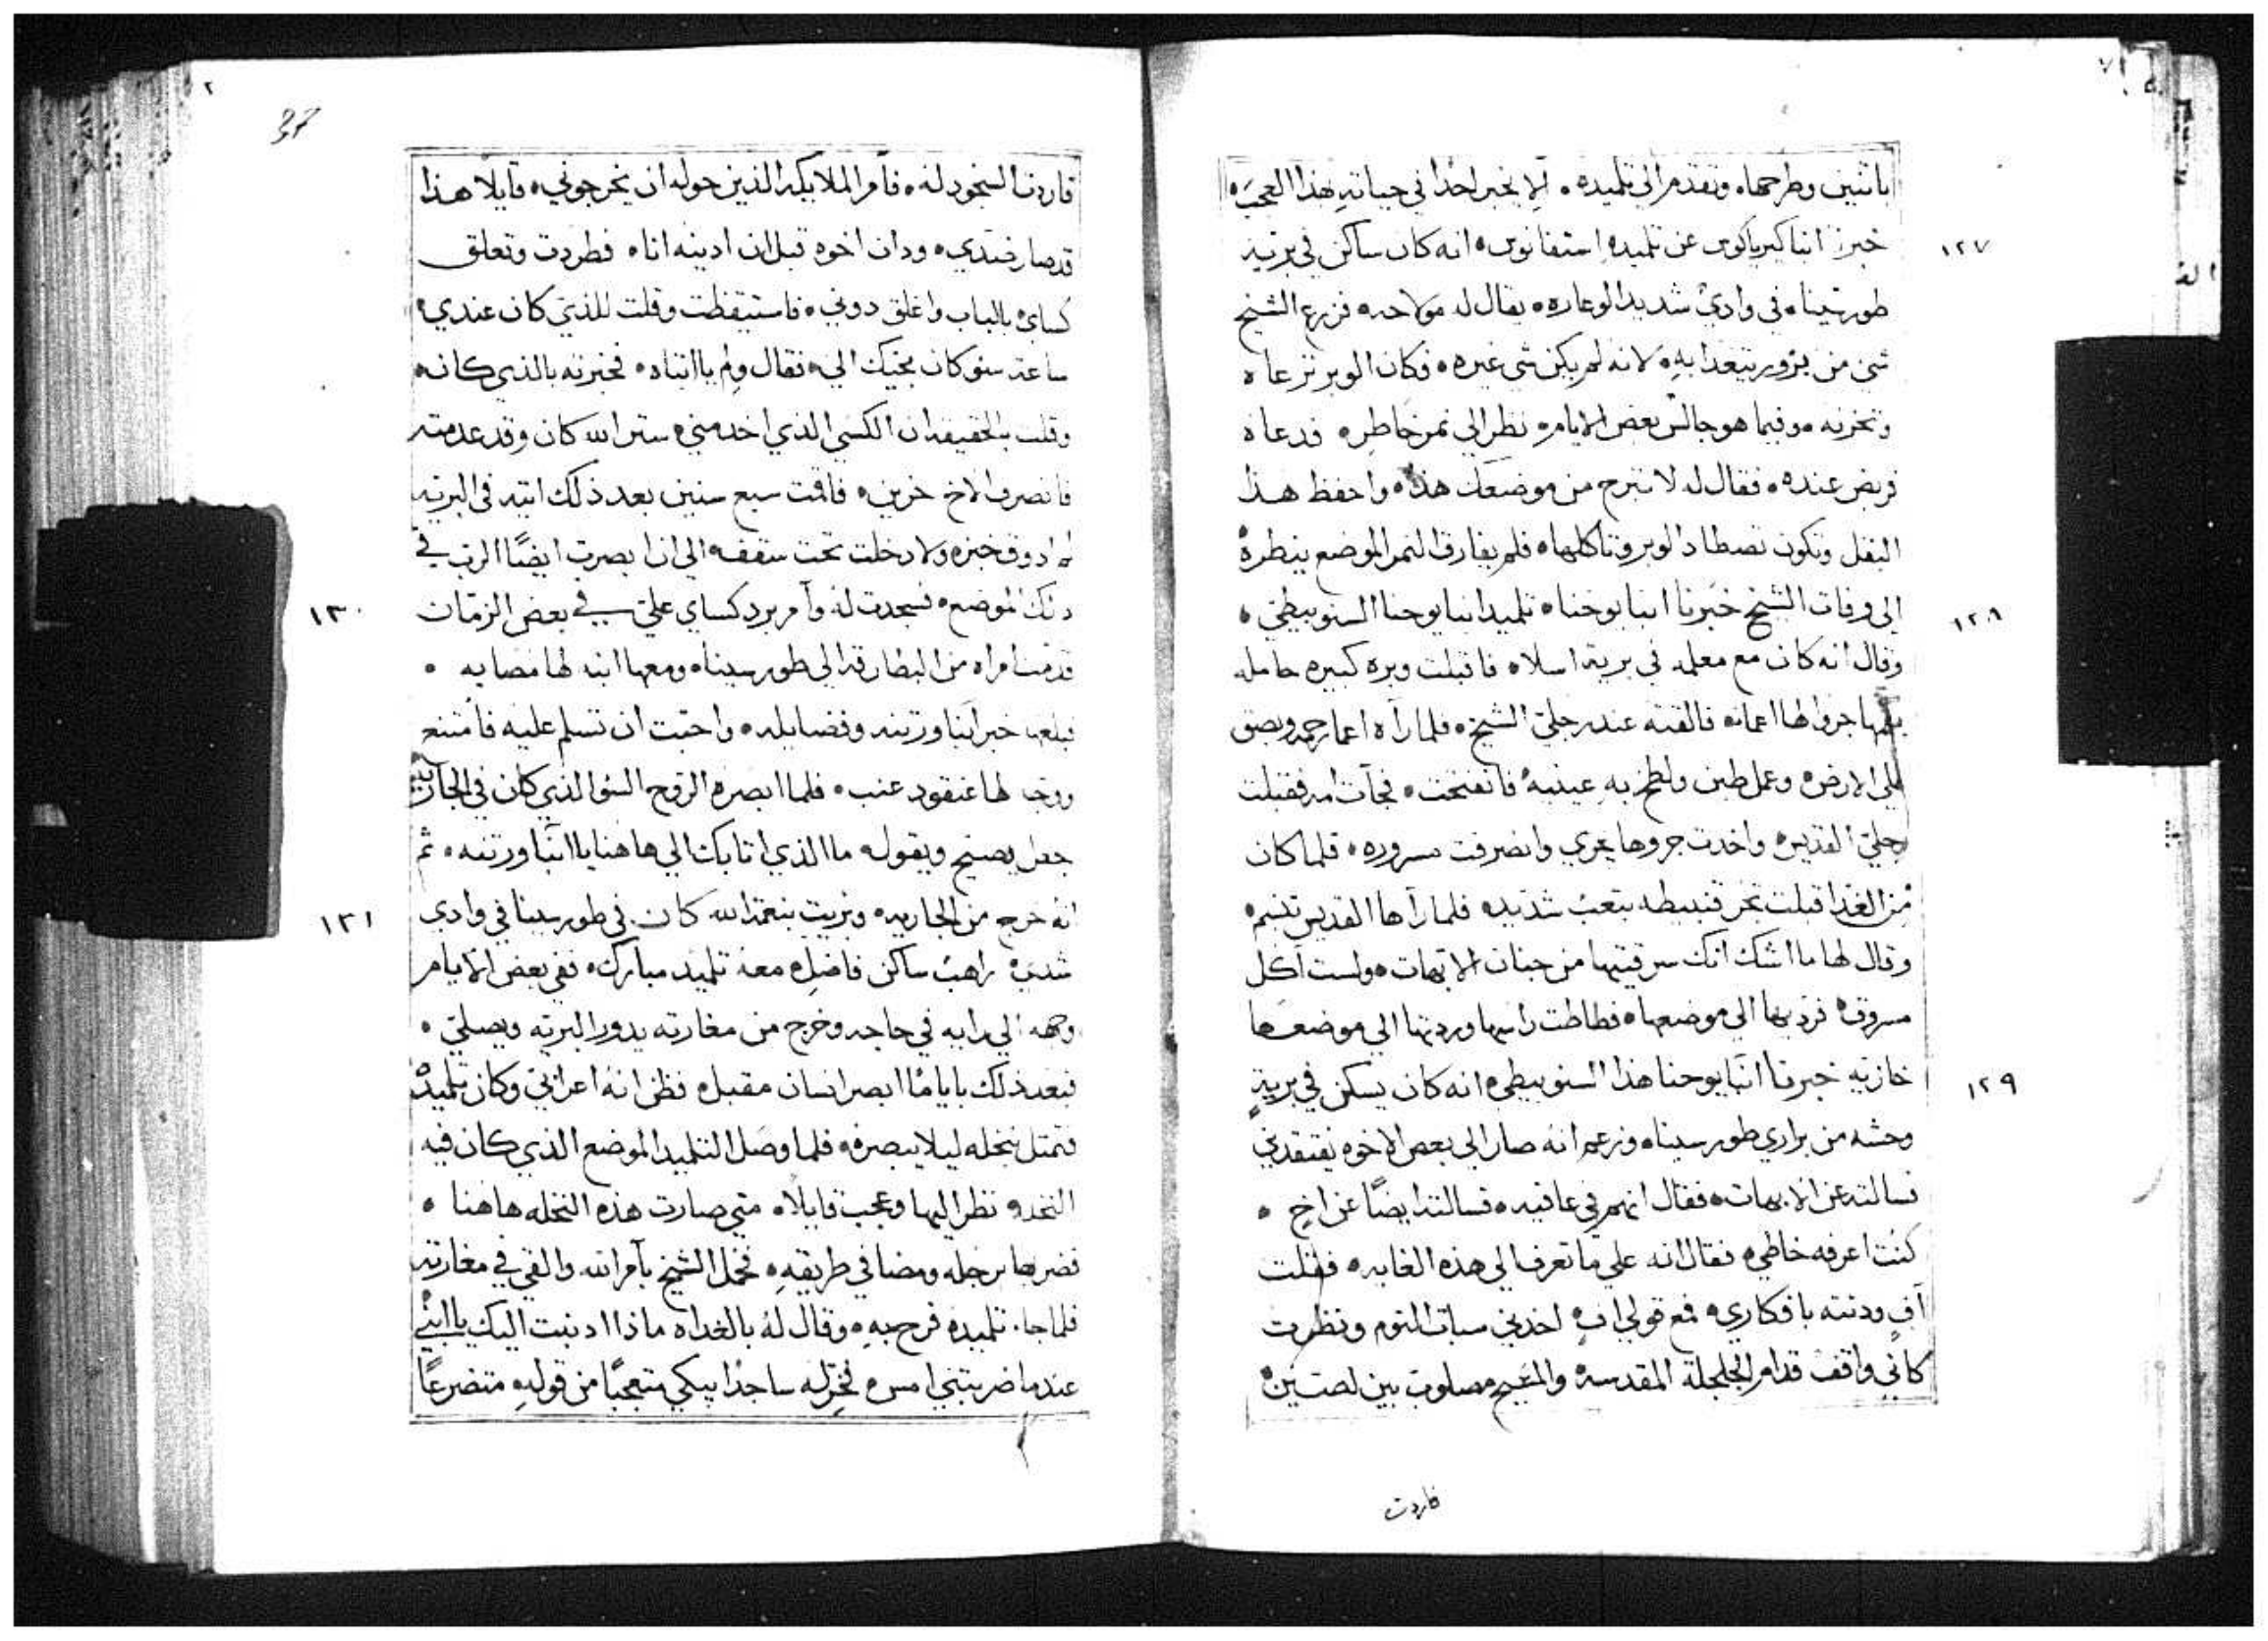 باتنين وطرحهاه وتقدم الي تلميده • الا يخبر احدًا في حياته بهذا العجبه
١٢٧
خبرنا انبا كيرياكوس عن تلميده استفانوس ه انه كان ساكن في برية
طورسيناه في وادي شديد الوعاره ه يقال له مولاحه فزرع الشيخ
شي من بزور يتغدا به ه لانه لم يكن شي غيره ه فكان الوبر ترعاه
وتخربه ه وفيما هو جالس بعض الايام نظر الي نمر خاطر ه فدعاه
فربض عنده ه فقال له لا تبرح من موضعك هذا ه واحفظ هذا
البقل وتكون تصطاد الوبر وتاكلها ه فلم يفارق النمر الموضع ينطره
الي وفات الشيخ خبرنا انبا يوحنا ه تلميد انبا يوحنا السنوبيطي ه
١٢٨
وقال انه كان مع معلمه في برية اسلاه فاقبلت وبره كبيره حامله
بفمها جروا لها اعما ه فالقته عند رجلي الشيخ ه فلما راه اعما رحمه وبصق
علي الارض ه وعمل طين ولطخ به عينيه فانفتحت ه فجات امه فقبلت
رجلي القديس ه واخدت جروها يجري وانصرفت مسروره ه فلما كان
من الغد اقبلت تجر قنبيطه بتعب شديد ه فلما رآها القديس تبسم ه
وقال لها ما اشك انك سرقتيها من جنان الابهات ه ولست آكل
مسروق ه فرديها الي موضعها ه فطاطت راسها وردتها الي موضعها
خازيه خبرنا انبا يوحنا هذا السنوبيطي ه انه كان يسكن في برية
١٢٩
وحشه من براري طورسيناه وزعم انه صار الي بعض الاخوه يفتقدني
فسالته عن الابهات ه فقال انهم في عافيه ه فسالته ايضًا عن اخ ه
كنت اعرفه خاطي ه فقال انه علي ما تعرف الي هذه الغايه ه فقلت
آف ودنته بافكاري ه فمع قولي اف اخدني سبات النوم ونظرت
كاني واقف قدام الجلجلة المقدسه والمسيح مصلوب بين لصين ه
فاردت
37
فاردت السجود له ه فأمر الملايكه الذين حوله ان يخرجوني ه قايلا هذا
قد صار ضدي ه ودان اخوه قبل ان ادينه انا ه فطردت وتعلق
كساي بالباب واغلق دوني ه فاستيقظت وقلت للذي كان عندي ه
ساعة سو كان مجيك الي ه فقال ولم يا ابتاه ه فخبرته بالذي كان ه
وقلت بالحقيقه ان الكسي الذي اخد مني ه ستر الله كان وقد عدمته
فانصرف الاخ حزين ه فاقمت سبع سنين بعد ذلك ايته في البريه
لم ادوق خبزه ولا دخلت تحت سقف ه الي ان ابصرت ايضًا الرب في
ذلك الموضع ه فسجدت له وآمر برد كساي علي في بعض الزمان
١٣٠
قدمت امراه من البطارقه الي طورسيناه ومعها ابنه لها مصابه ه
فبلغها خبر انبا ورتنه وفضايله ه واحبت ان تسلم عليه فامتنع
ووجه لها عنقود عنب ه فلما ابصره الروح السو الذي كان في الجاريه
جعل يصيح ويقول ه ما الذي اتا بك الي هاهنا يا انبا ورتنه ه ثم
انه خرج من الجاريه ه وبريت بنعمة الله كان في طورسينا في وادي
١٣١
شديد راهب ساكن فاضل ه معه تلميد مبارك ه ففي بعض الايام
وجهه الي رايه في حاجه وخرج من مغارته يدور البريه ويصلي ه
فبعد ذلك باياما ابصر انسان مقبل ه فظن انه اعرابي وكان تلميده
فتمتل بنخله ليلا يبصره ه فلما وصل التلميد الموضع الذي كان فيه
النخله نظر اليها وعجب قايلا ه متي صارت هذه النخله هاهنا ه
فضربها برجله ومضا في طريقه ه فحمل الشيخ بآمر الله والقي في مغارته
فلما جا تلميده فرح به ه وقال له بالغداه ماذا ادنبت اليك يا ابني
عندما ضربتني امس ه فخر له ساجدًا يبكي متعجبًا من قوله متضرعًا